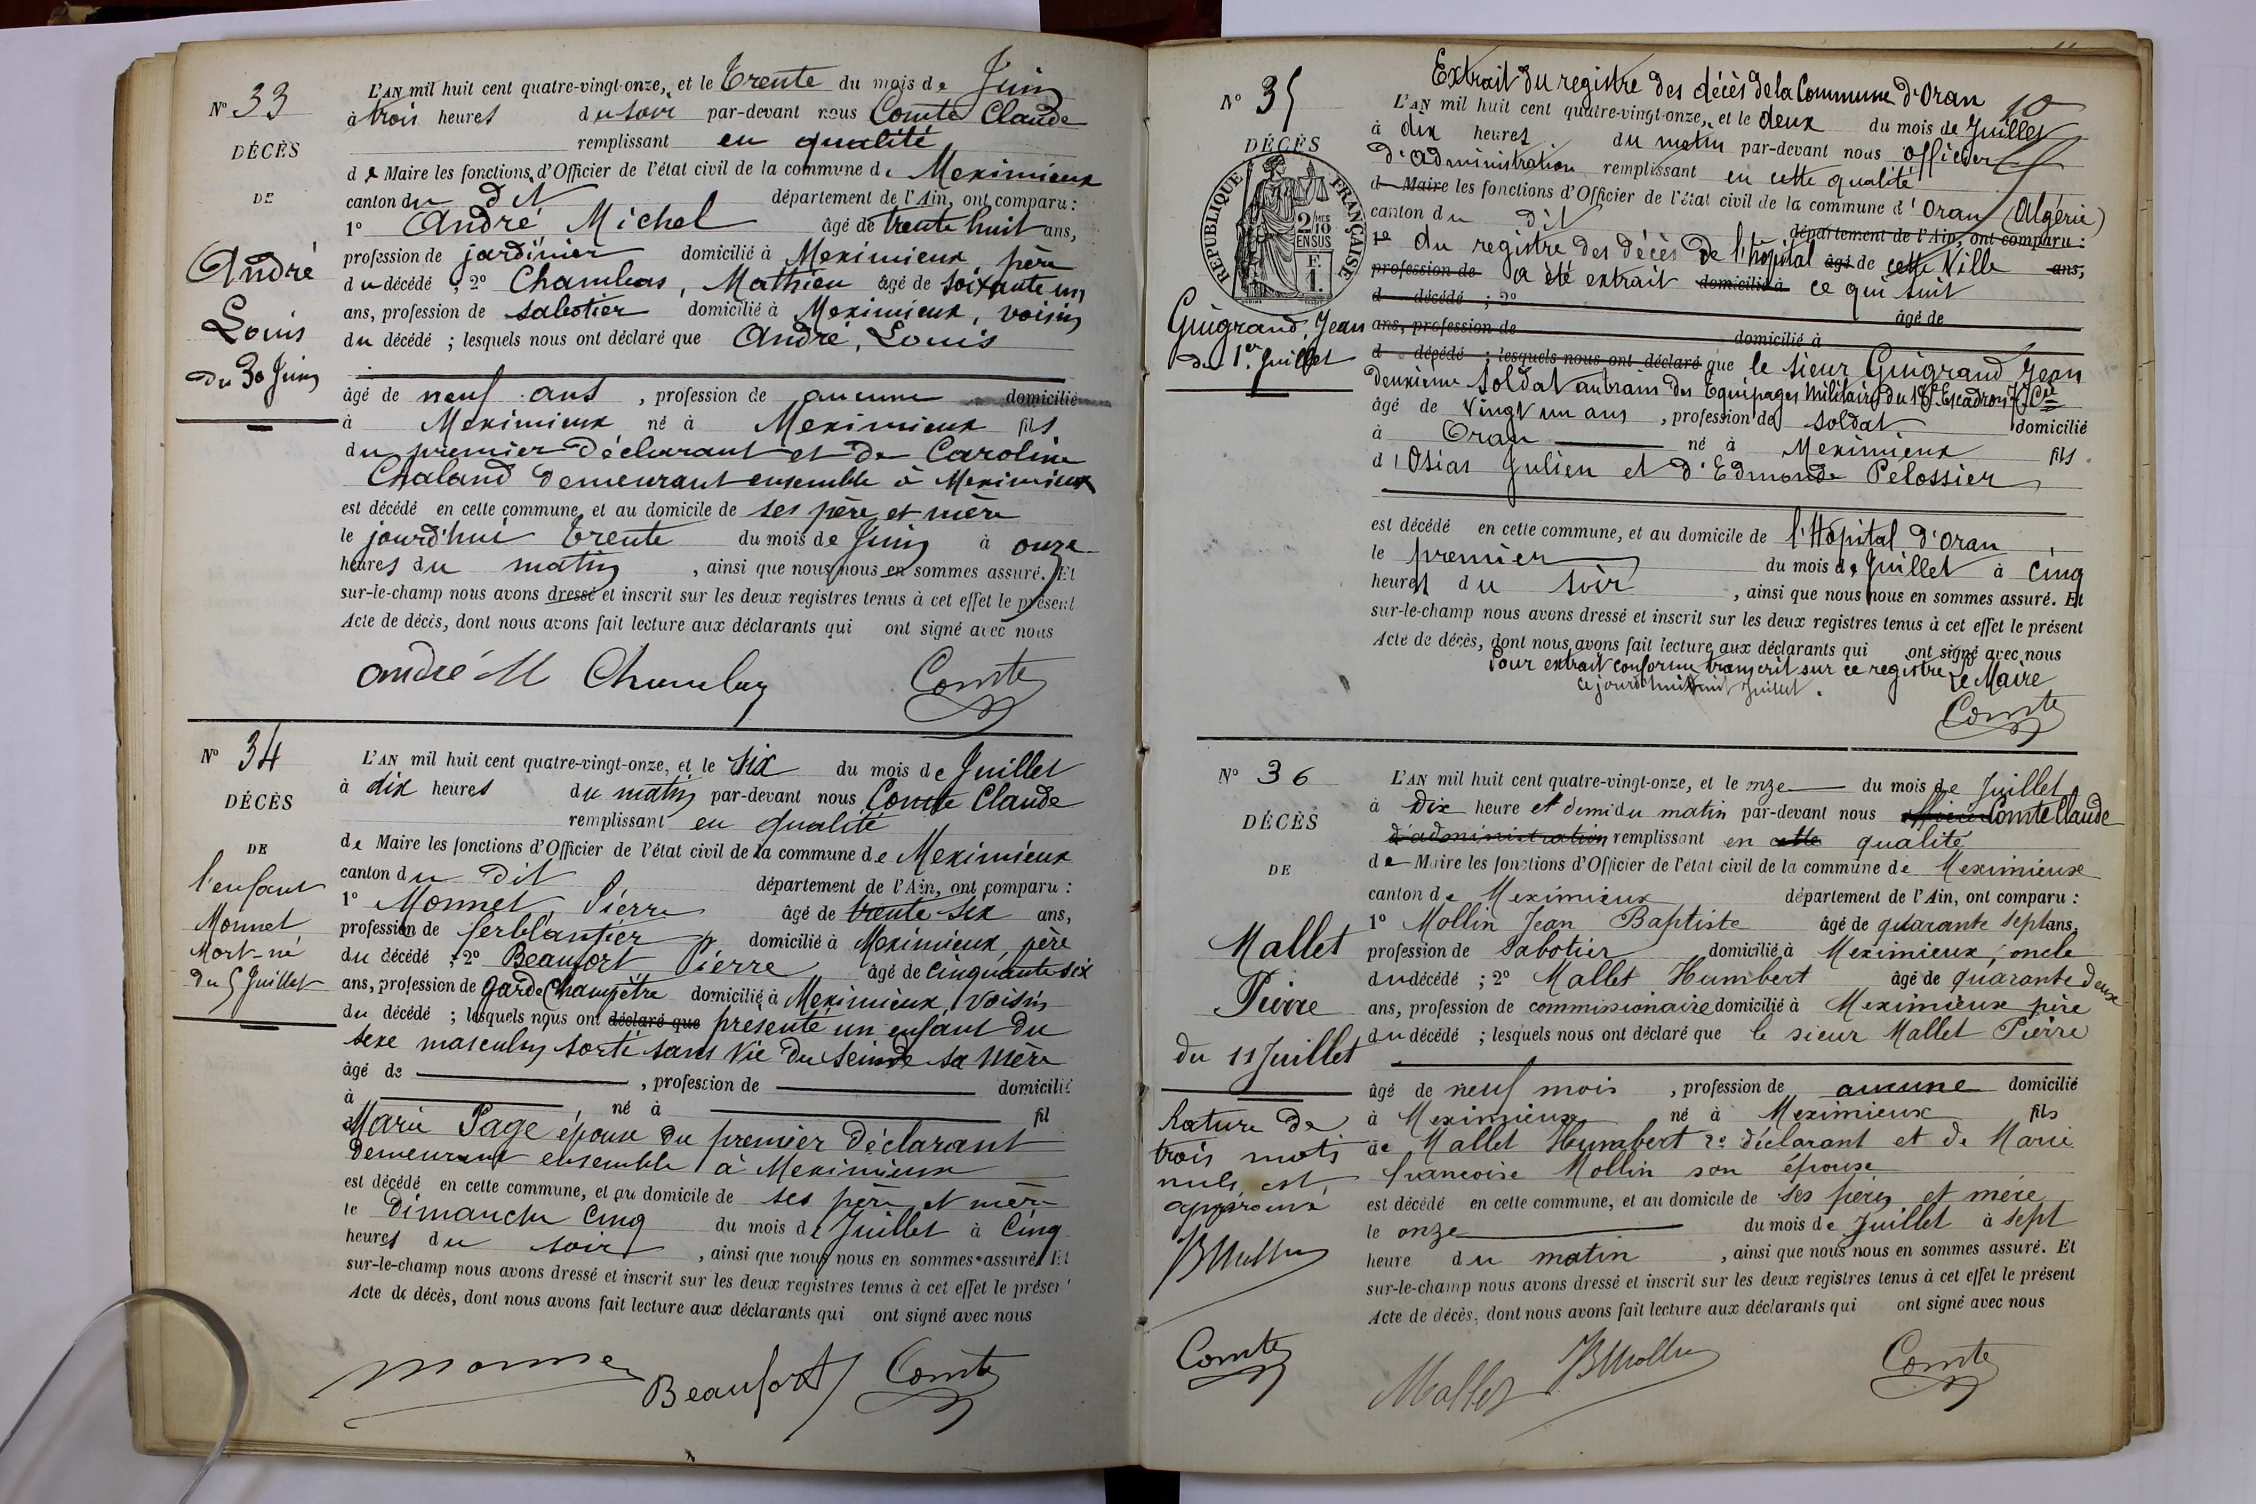 N° 33
DÉCÈS
DE
André
Louis
du 30 Juin
L'AN mil huit cent quatre-vingt-onze, et le Trente du mois de Juin
à trois heures du soir par-devant nous Comte Claude
remplissant en qualité
de Maire les fonctions d'Officier de l'état civil de la commune de Meximieux
canton du dit département de l'Ain, ont comparu :
1° André Michel âgé de trente huit ans,
profession de jardinier domicilié à Meximieux père
du décédé ; 2° Chambas, Mathieu âgé de soixante un
ans, profession de sabotier domicilié à Meximieux, voisin
du décédé ; lesquels nous ont déclaré que André, Louis
âgé de neuf ans , profession de aucune domicilié
à Meximieux né à Meximieux fils
du premier déclarant et de Caroline
Chaland demeurant ensemble à Meximieux
est décédé en cette commune, et au domicile de ses père et mère
le jourd'hui trente du mois de Juin à onze
heures du matin , ainsi que nous nous en sommes assuré. Et
sur-le-champ nous avons dressé et inscrit sur les deux registres tenus à cet effet le présent
Acte de décès, dont nous avons fait lecture aux déclarants qui ont signé avec nous
André M Chambas Comte
N° 34
DÉCÈS
DE
l'enfant
Monnet
Mort-né
du 5 Juillet
L'AN mil huit cent quatre-vingt-onze, et le six du mois de Juillet
à dix heures du matin par-devant nous Comte Claude
remplissant en qualité
de Maire les fonctions d'Officier de l'état civil de la commune de Meximieux
canton du dit département de l'Ain, ont comparu :
1° Monnet Pierre âgé de trente-six ans,
profession de ferblantier domicilié à Meximieux, père
du décédé ; 2° Beaufort Pierre âgé de cinquante six
ans, profession de garde champêtre domicilié à Meximieux, voisin
du décédé ; lesquels nous ont déclaré que présenté un enfant du
sexe masculin sorti sans vie du sein de sa mère
âgé de , profession de domicilié
à né à fil
d Marie Page épouse du premier déclarant
demeurant ensemble à Meximieux
est décédé en cette commune, et au domicile de ses père et mère
le Dimanche cinq du mois de Juillet à cinq
heures du soir , ainsi que nous nous en sommes assuré. Et
sur-le-champ nous avons dressé et inscrit sur les deux registres tenus à cet effet le présent
Acte de décès, dont nous avons fait lecture aux déclarants qui ont signé avec nous
Monnet Beaufort Comte
N° 35
DÉCÈS
RÉPUBLIQUE FRANÇAISE
2/10 MES
EN SUS
F.
1.
Guigrand, Jean
du 1er Juillet
Extrait du registre des décès de la Commune d'Oran
L'AN mil huit cent quatre-vingt-onze, et le deux du mois de Juillet
à dix heures du matin par-devant nous officier
d'administration remplissant en cette qualité
d Maire les fonctions d'Officier de l'état civil de la commune d'Oran (Algérie)
canton du dit département de l'Ain, ont comparu :
1° du registre des décès de l'hôpital âgé de cette Ville ans,
profession de a été extrait domicilié à ce qui suit
d décédé ; 2° âgé de
ans, profession de domicilié à
d décédé ; lesquels nous ont déclaré que le sieur Guigrand Jean
deuxième soldat au train des Equipages Militaires du 18e Escadron 7e Cie
âgé de vingt un ans , profession de soldat domicilié
à Oran né à Meximieux fils
d'Osias Julien et d'Edmonde Pelossier
est décédé en cette commune, et au domicile de l'Hôpital d'Oran
le premier du mois de Juillet à cinq
heures du soir , ainsi que nous nous en sommes assuré. Et
sur-le-champ nous avons dressé et inscrit sur les deux registres tenus à cet effet le présent
Acte de décès, dont nous avons fait lecture aux déclarants qui ont signé avec nous
Pour extrait conforme transcrit sur ce registre Le Maire
ce jourd'hui huit Juillet.
Comte
N° 36
DÉCÈS
DE
Mallet
Pierre
du 11 Juillet
Rature de
trois mots
nuls est
approuvé
JBMollin
Comte
L'AN mil huit cent quatre-vingt-onze, et le onze du mois de Juillet
à dix heure et demi du matin par-devant nous officier Comte Claude
d'administration remplissant en cette qualité
de Maire les fonctions d'Officier de l'état civil de la commune de Meximieux
canton de Meximieux département de l'Ain, ont comparu :
1° Mollin Jean Baptiste âgé de quarante sept ans,
profession de sabotier domicilié à Meximieux, oncle
du décédé ; 2° Mallet Humbert âgé de quarante deux
ans, profession de commissionaire domicilié à Meximieux père
du décédé ; lesquels nous ont déclaré que le sieur Mallet Pierre
âgé de neuf mois , profession de aucune domicilié
à Meximieux né à Meximieux fils
de Mallet Humbert 2e déclarant et de Marie
francoise Mollin son épouse
est décédé en cette commune, et au domicile de ses pères et mère
le onze du mois de Juillet à sept
heure du matin , ainsi que nous nous en sommes assuré. Et
sur-le-champ nous avons dressé et inscrit sur les deux registres tenus à cet effet le présent
Acte de décès, dont nous avons fait lecture aux déclarants qui ont signé avec nous
Mallet JBMollin Comte